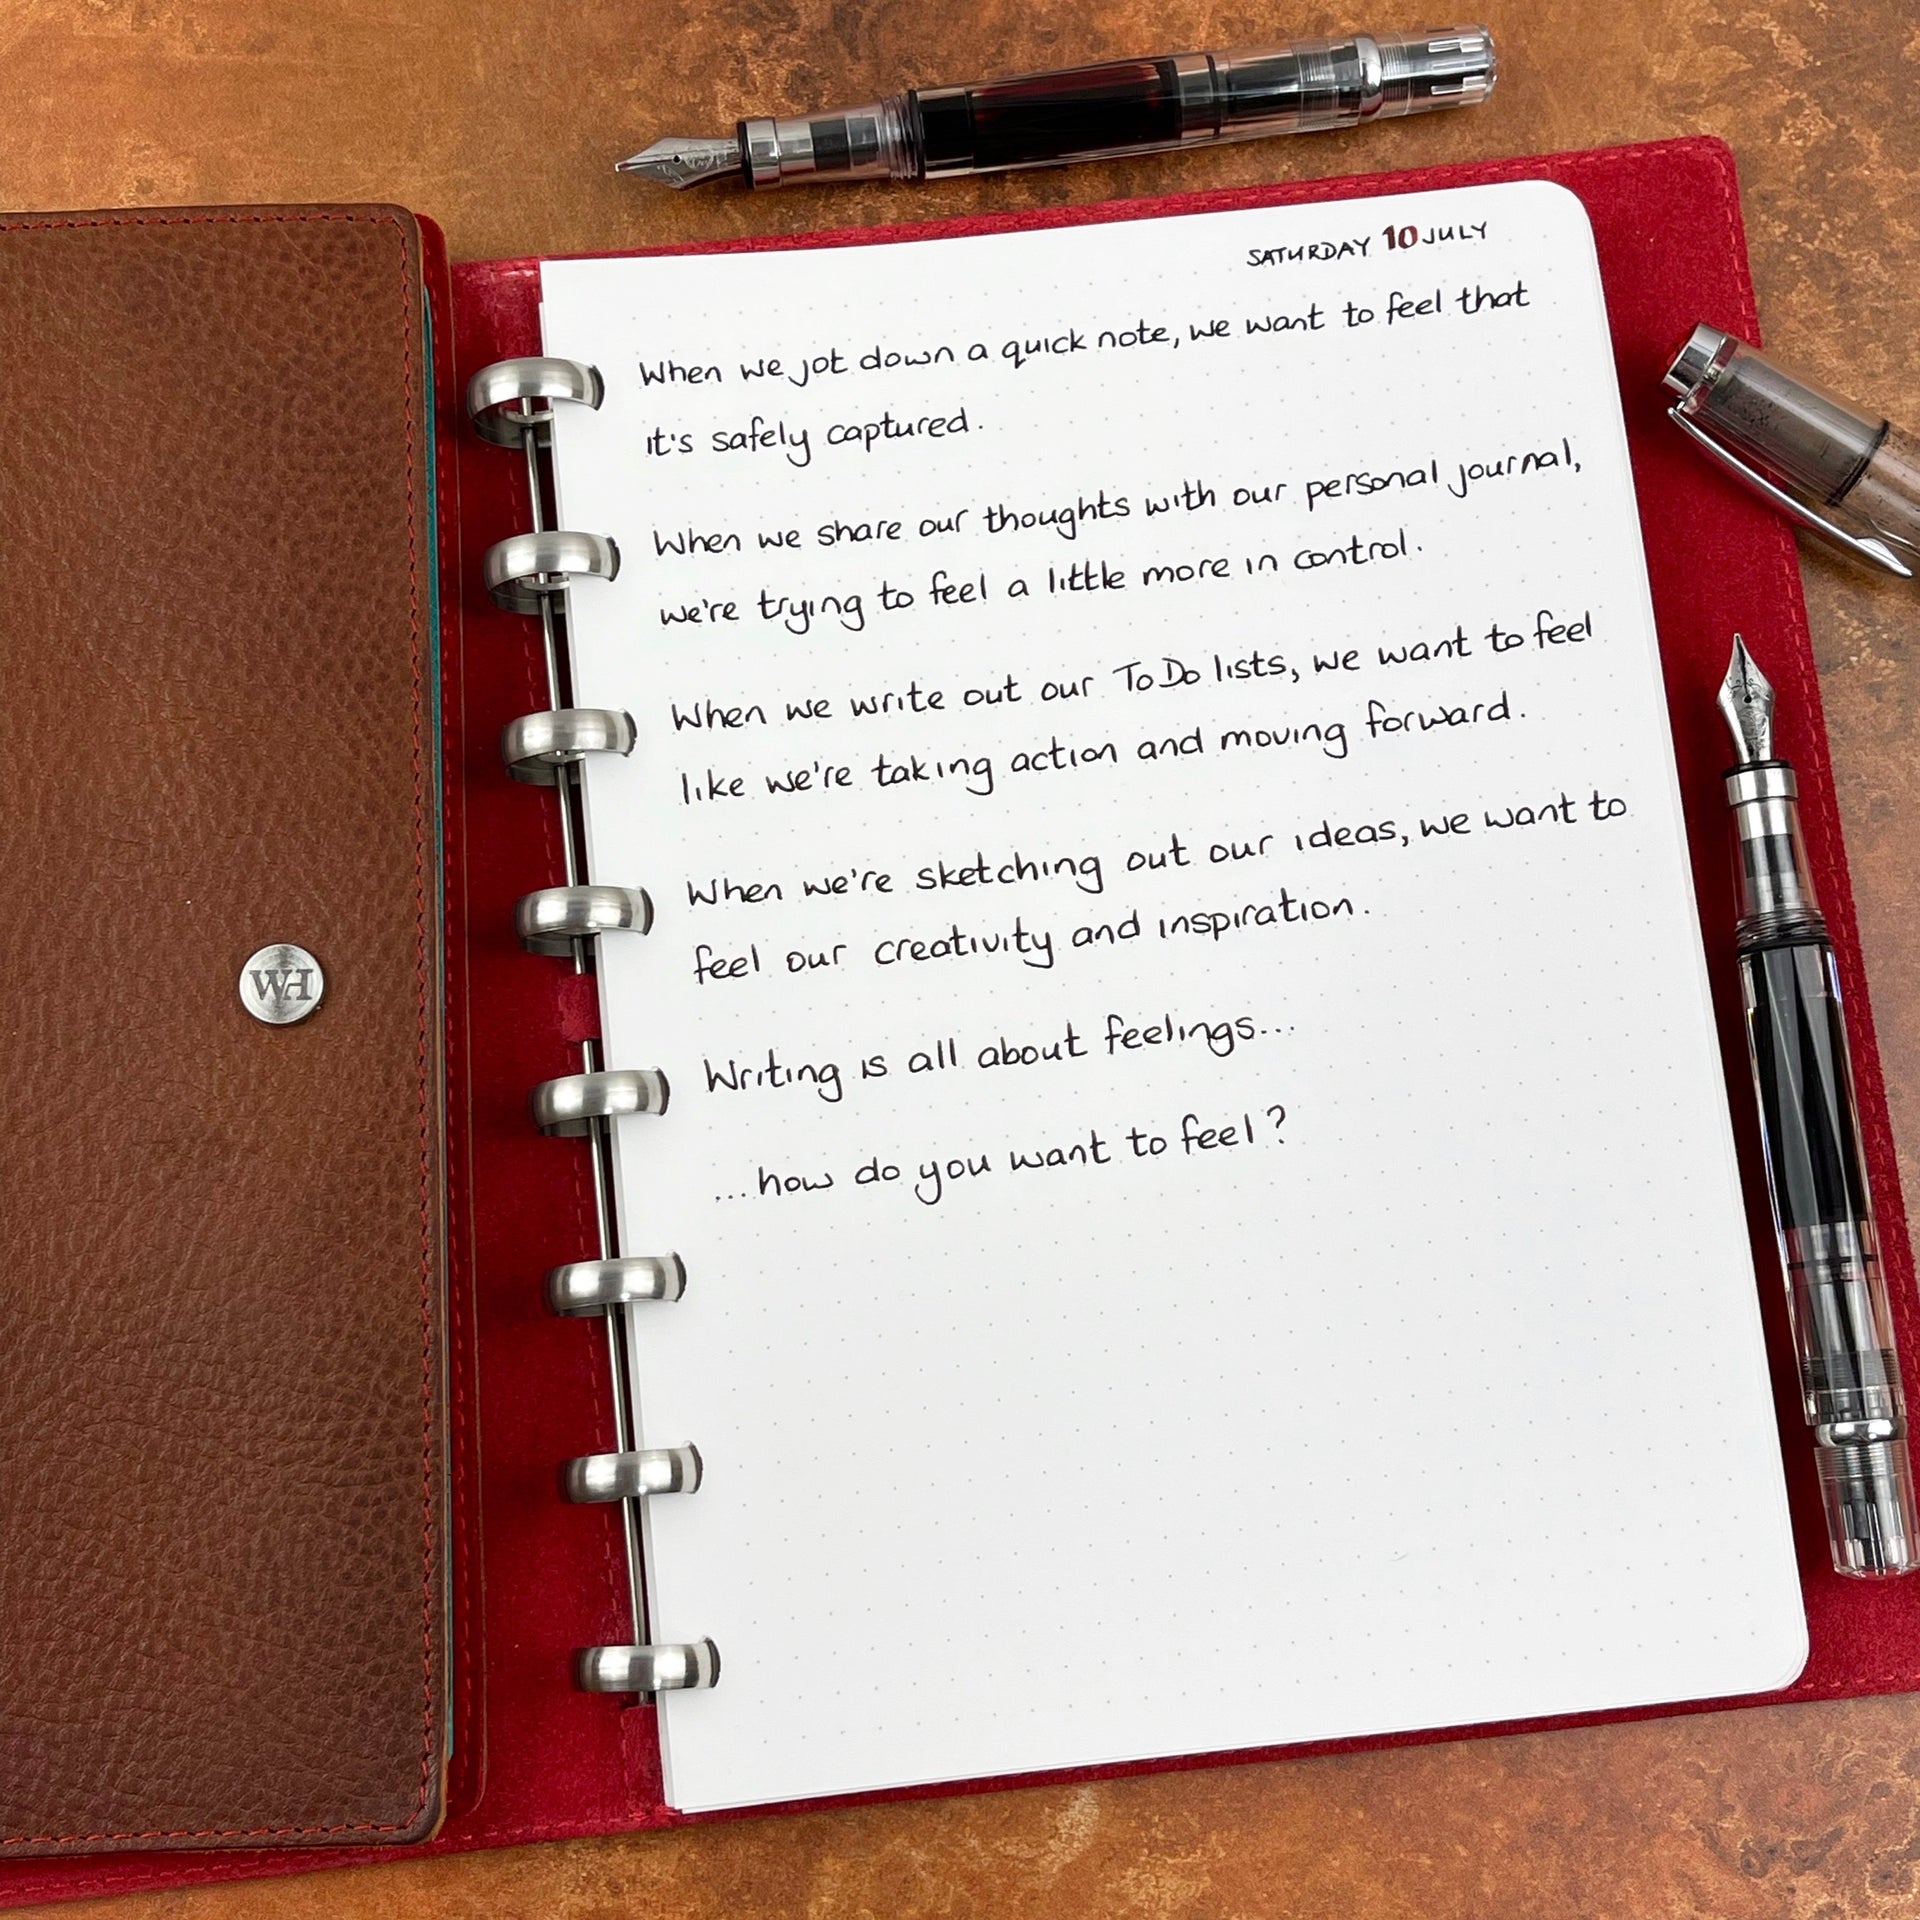 SATURDAY 10 JULY
When we jot down a quick note, we want to feel that
it's safely captured.
When we share our thoughts with our personal journal,
we're trying to feel a little more in control.
When we write out our To Do lists, we want to feel
like we're taking action and moving forward.
When we're sketching out our ideas, we want to
feel our creativity and inspiration.
Writing is all about feelings...
...how do you want to feel?
WH